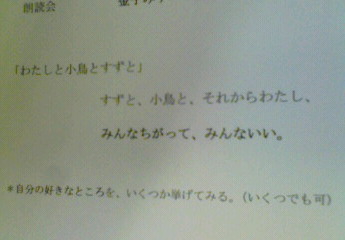 朗読会
金子み
「わたしと小鳥とすずと」
すずと、小鳥と、それからわたし、
みんなちがって、みんないい。
*自分の好きなところを、いくつか挙げてみる。(いくつでも可)